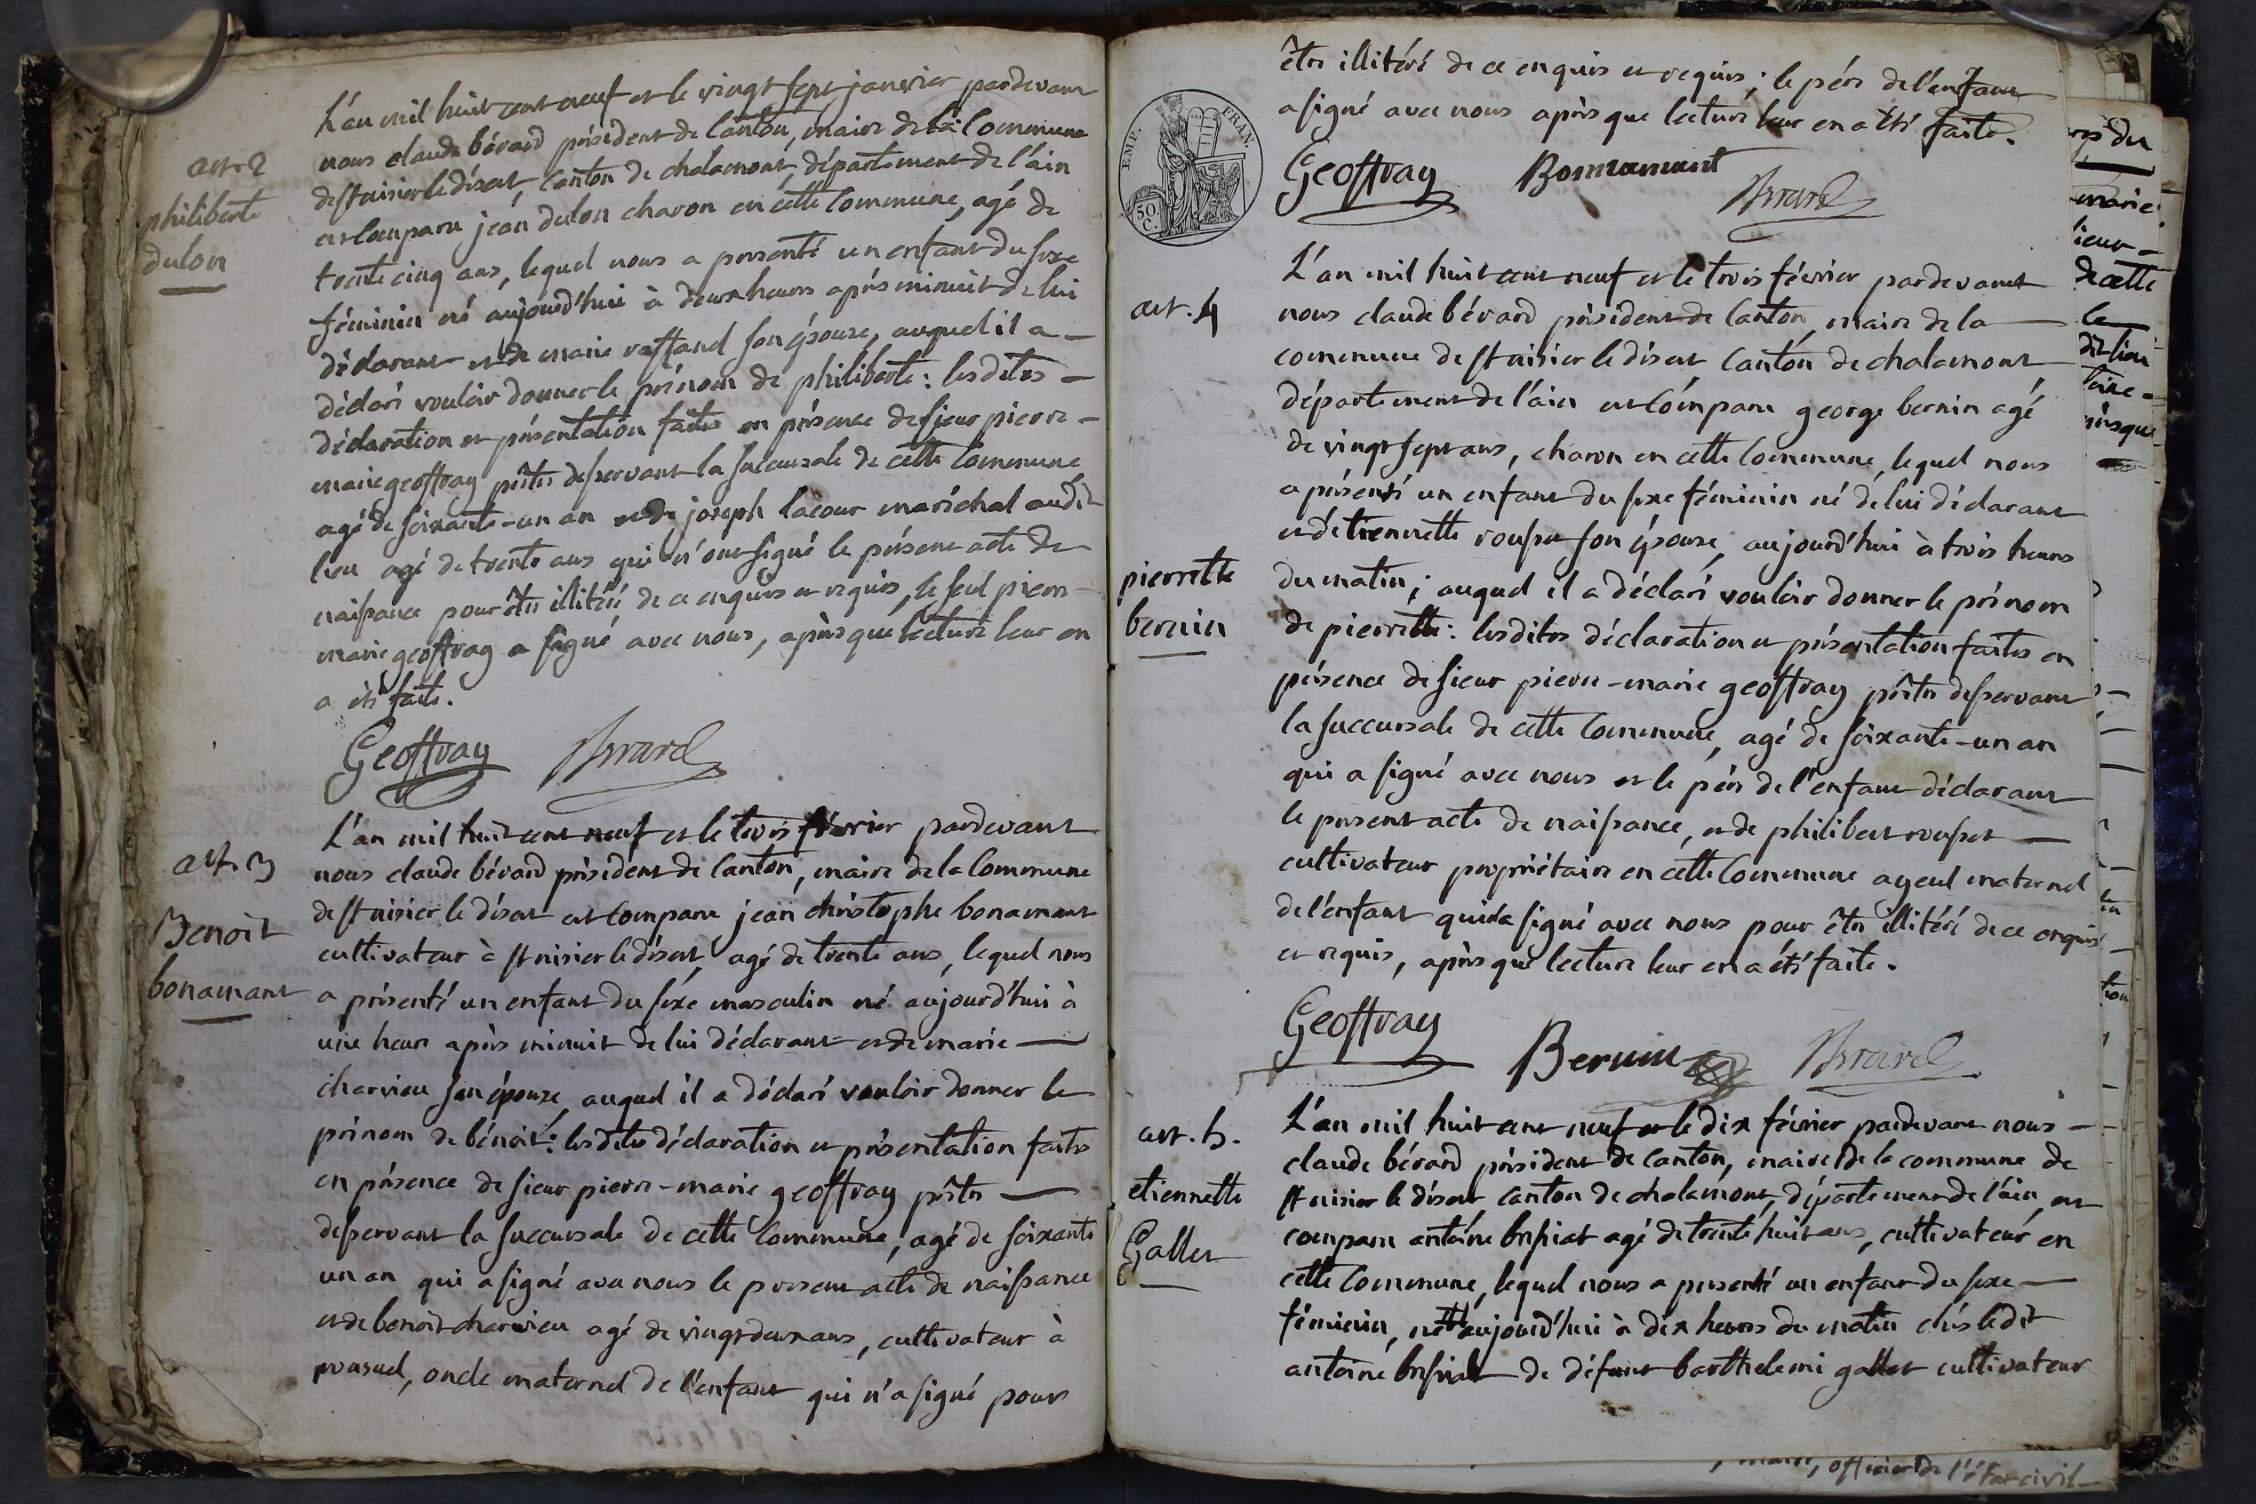 art. 2
philiberte
dulon
L'an mil huit cent neuf et le vingt sept janvier pardevant
nous claude bérard président de canton, maire de la Commune
de st nizier le désert, Canton de chalamont, département de l'ain
est Comparu jean dulon charon en cette Commune, agé de
trente cinq ans, lequel nous a présenté un enfant du sexe
féminin né aujourd'hui à deux heures après minuit de lui
déclarant et de marie raffand son épouse, auquel il a
déclaré vouloir donner le prénom de philiberte : les dites
déclaration et présentation faites en présence de sieur pierre-
marie geoffray prêtre desservant la succursale de cette Commune
agé de soixante-un an et de joseph lacour maréchal audit
lieu agé de trente ans qui n'ont signé le présent acte de
naissance pour être illitéré de ce enquis et requis, le seul pierre-
marie geoffray a signé avec nous, après que lecture leur en
a été faite.
Geoffray Bérard
art. 3
Benoit
bonamant
L'an mil huit cent neuf et le trois février pardevant
nous claude bérard président de Canton, maire de la Commune
de st nizier le désert est Comparu jean christophe bonamant
cultivateur à st nizier le désert, agé de trente ans, lequel nous
a présenté un enfant du sexe masculin né aujourd'hui à
une heure après minuit de lui déclarant et de marie
charvieu son épouse, auquel il a déclaré vouloir donner le
prénom de bénoit : les dites déclaration et présentation faites
en présence de sieur pierre-marie geoffray prêtre
desservant la succursale de cette Commune, agé de soixante
un an qui a signé avec nous le present acte de naissance
et de benoit charvieu agé de vingt deux ans, cultivateur à
, oncle maternel de l'enfant qui n'a signé pour
être illitéré de ce enquis et requis ; le père de l'enfant
a signé avec nous après que lecture leur en a été faite.
Geoffray Bonnamant Bérard
EMP. FRAN.
50.
C.
art. 4
pierrette
bernin
L'an mil huit cent neuf et le trois février pardevant
nous claude bérard président de Canton, maire de la
commune de st nizier le désert Canton de chalamont
département de l'ain est Comparu george bernin agé
de vingt sept ans, charon en cette Commune, lequel nous
a présenté un enfant du sexe féminin né de lui déclarant
et d'etiennette rousset son épouse, aujourd'hui à trois heures
du matin ; auquel il a déclaré vouloir donner le prénom
de pierrette : les dites déclaration et présentation faites en
présence de sieur pierre-marie geoffray prêtre desservant
la succursale de cette Commune, agé de soixante-un an
qui a signé avec nous et le père de l'enfant déclarant
le present acte de naissance, et de philibert rousset
cultivateur propriétaire en cette Commune ayeul maternel
de l'enfant qui n'a signé avec nous pour être illitéré de ce enquis
et requis, après que lecture leur en a été faite.
Geoffray Bernin Bérard
art. 5.
etiennette
Gallet
L'an mil huit cent neuf et le dix février pardevant nous
claude bérard président de Canton, maire de la commune de
st nizier le désert, Canton de chalamont, département de l'ain, est
comparu antoine bressiat agé de trente huit ans, cultivateur en
cette Commune, lequel nous a presenté un enfant du sexe
féminin, né aujourd'hui à dix heures du matin chés ledit
antoine bressiat de défunt barthelemi gallet cultivateur
du
marie
sieur
de cette
le
dit lieu
, officier de l'état civil